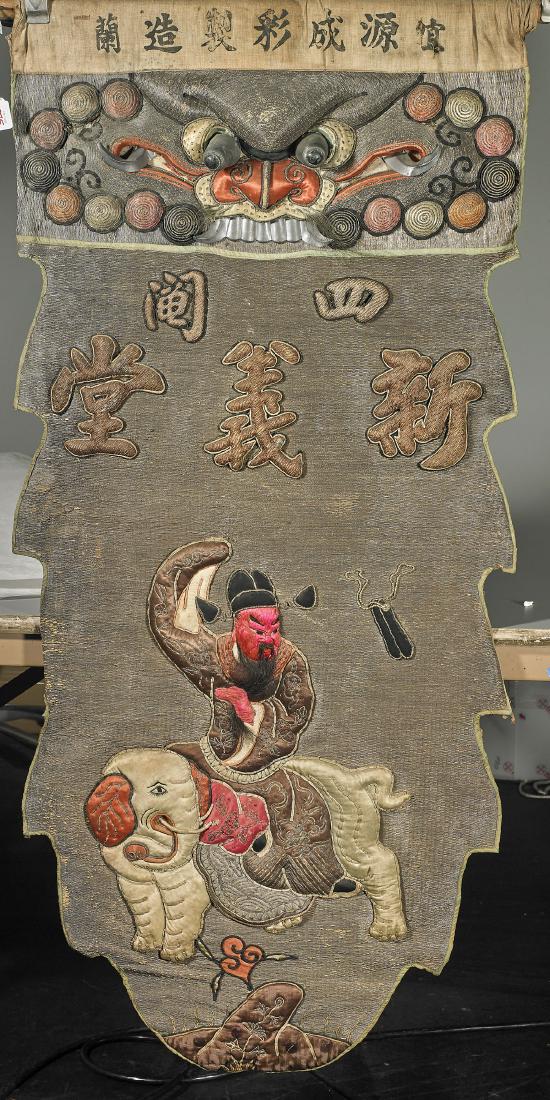 宜源成彩製造蘭
四
新義堂